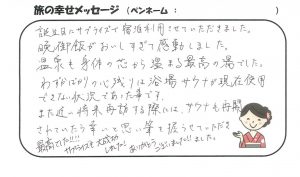 旅の幸せメッセージ (ペンネーム： )
誕生日にサプライズで宿泊利用させていただきました。
晩御飯がおいしすぎて感動しました。
温泉も身体の芯から温まる最高の湯でした。
わずかばかりの心残りは浴場サウナが現在使用
できない状況であった事です。
また近い将来再訪する際には、サウナも再開
されていたら幸いと思い筆を握らせていただき
最高でした!!! サプライズも大成功
しました! ありがとうございました!!しました。